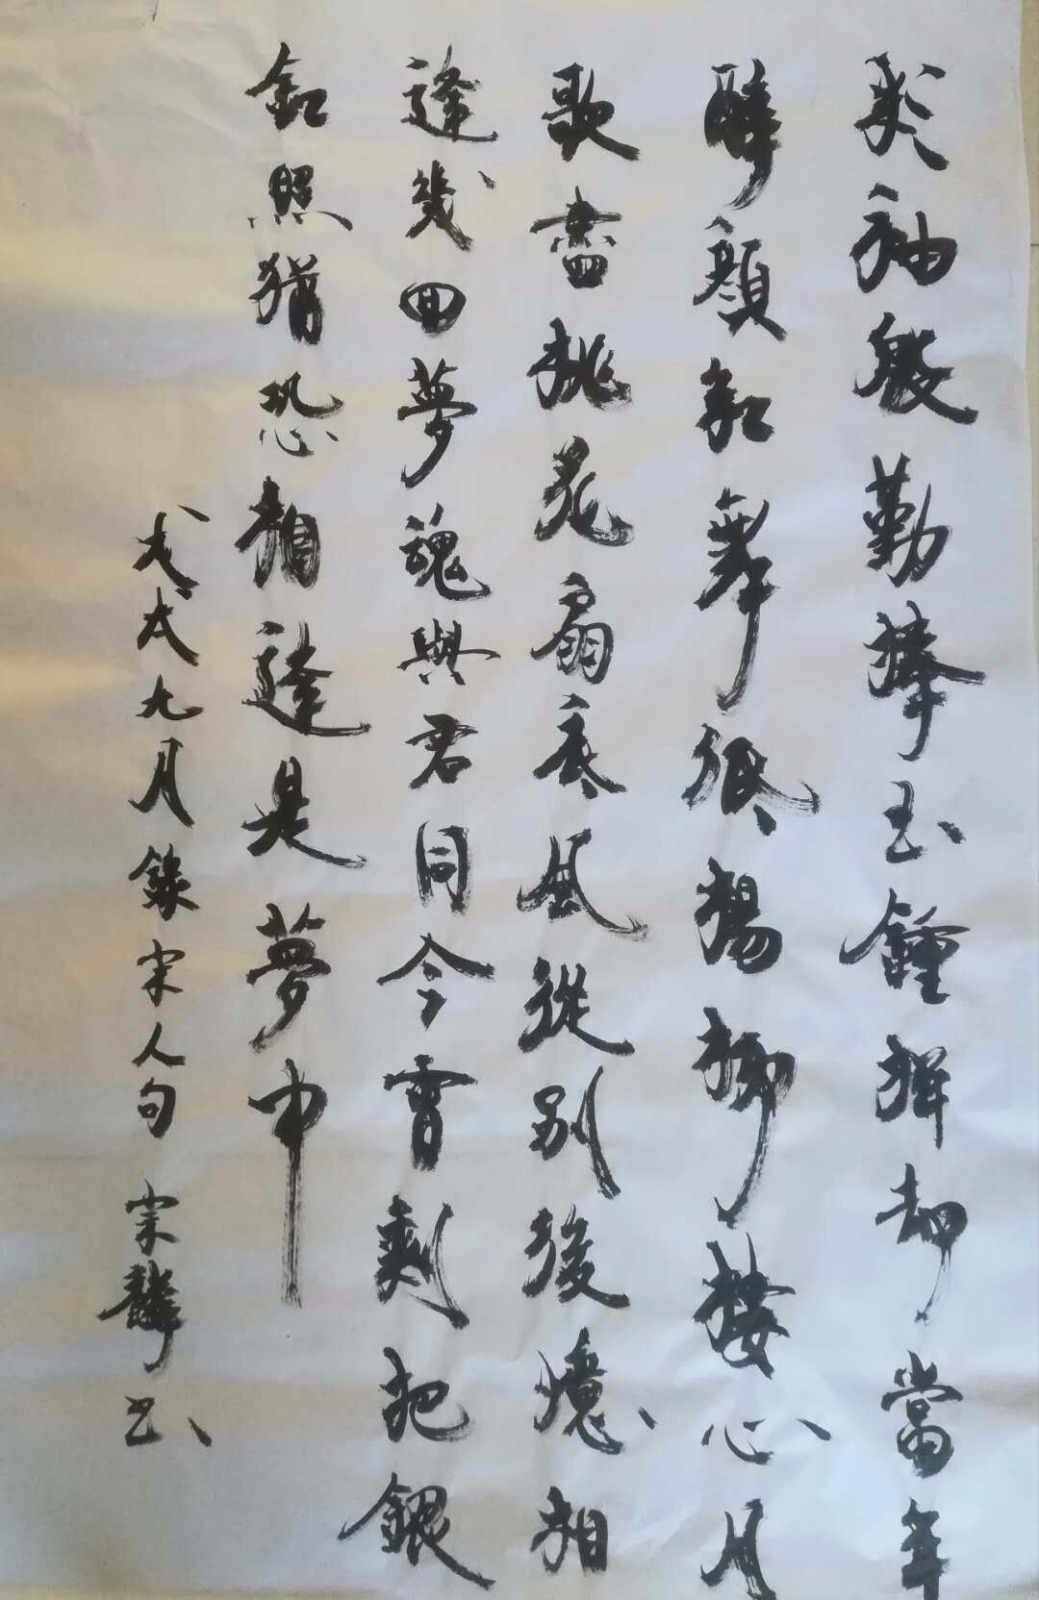 彩袖殷勤捧玉鍾拚却當年
醉顏紅舞低楊柳樓心月
歌盡桃花扇底風從別後憶相
逢幾回夢魂與君同今宵剩把銀
釭照猶恐相逢是夢中
戊戌九月錄宋人句 宗麟書